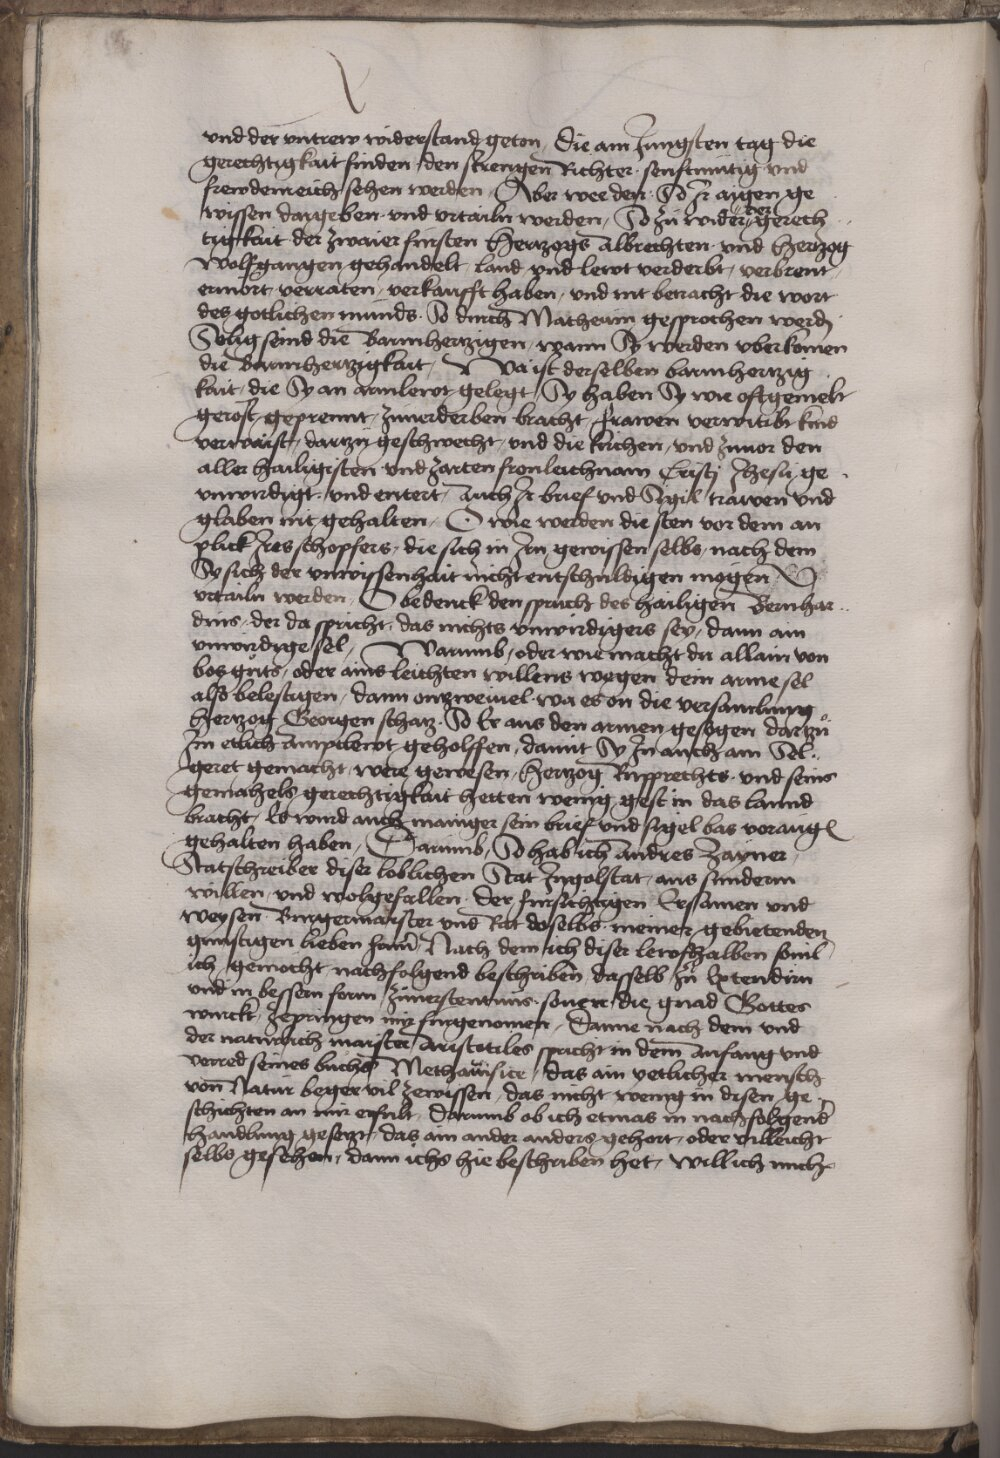 vnd der vntrew widerstand geton / die am Jungsten tag die
gerechtigkait finden / den strengen Richter / senfftmutig vnd
frewdenreich sehen werden / Aber wer den / So Jr aigen ge
wissen dargeben vnd vrtailn werden / So zu wider der gerech
tigkait der zwaier fursten Hertzogs Albrechten vnd Hertzog
Wolfgangen gehandelt / land vnd lewt verderbt / verbrent /
ermort / verraten / verkaufft haben / vnd nit betracht die wort
des gotlichen munds / So durch Matheum gesprochen werdn
Selig seind die Barmhertzigen / wann Sy werden vberkomen
die Barmhertzigkait / Wa ist derselben barmhertzig
kait / die Sy an armlewt gelegt / Sy haben Sy wie offtgemelt
gerost / geprennt / zuuerderben bracht / frawen verwitibt kind
verwaist / dartzu geschwecht / vnd die kirchen / vnd zuuor den
aller hailigisten vnd zarten fronleichnam Cristj Jhesu / ge
vnwirdigt / vnd entert / Auch Jr brief vnd Sigil / trawen vnd
glaben nit gehalten / O wie werden die sten vor dem an
plick Jres schopfers / die sich in Jrn gewissen selbs / nach dem
Sy sich der vnwissenhait nicht entschuldigen mogen /
vrtailn werden / O bedenck den spruch des hailigen Bernhar
dins / der da spricht / das nichts vnwirdigers sey / dann ain
vnwirdige sel / Warumb / oder wie macht du allain von
bos guts / oder ains leichten willens wegen dem arme sel
also belestigen / dann onzweiuel wa es on die versamlung
Hertzog Georgen schatz / So Er aus den armen gesogen dartzu
Jm etlich Amptlewt geholffen / damit Sy Jn auch am Sel
geret gemacht / were gewesen / Hertzog Rupprechts vnd seins
gemahels gerechtigkait hetten wenig gest in das lannd
bracht / Es wurd auch mainger sein brief vnd sigel bas vor augn
gehalten haben / Darumb / So hab ich Andres Zayner /
Statschreiber diser loblichen Stat Jngolstat / aus sunderm
willen / vnd wolgefallen / der fursichtigen Ersamen vnd
weysen Burgermaister vnd Rat doselbs meiner gebietenden
gunstigen lieben herrn / Nach dem ich diser lewfhalben souil
ich gemocht nachfolgend beschriben / dasselb zu Extendirn
vnd in bessern form / zuuerstentnus / souerr die gnad Gottes
wurckt / zepringen mir furgenomen / Danne nach dem vnd
der naturlich maister Aristotiles spricht in dem Anfang vnd
vorred seines buchs Methauisice / das ain yetlicher mensch
von Natur beger vil zewissen / das nicht wenig in disen ge
schichten an mir erfult / Darumb ob ich etwas in nachfolgend
handlung gesetzt / das ain ander anders gehort / oder villeicht
selbs gesehen / dann ichs hie beschriben het / will ich mich